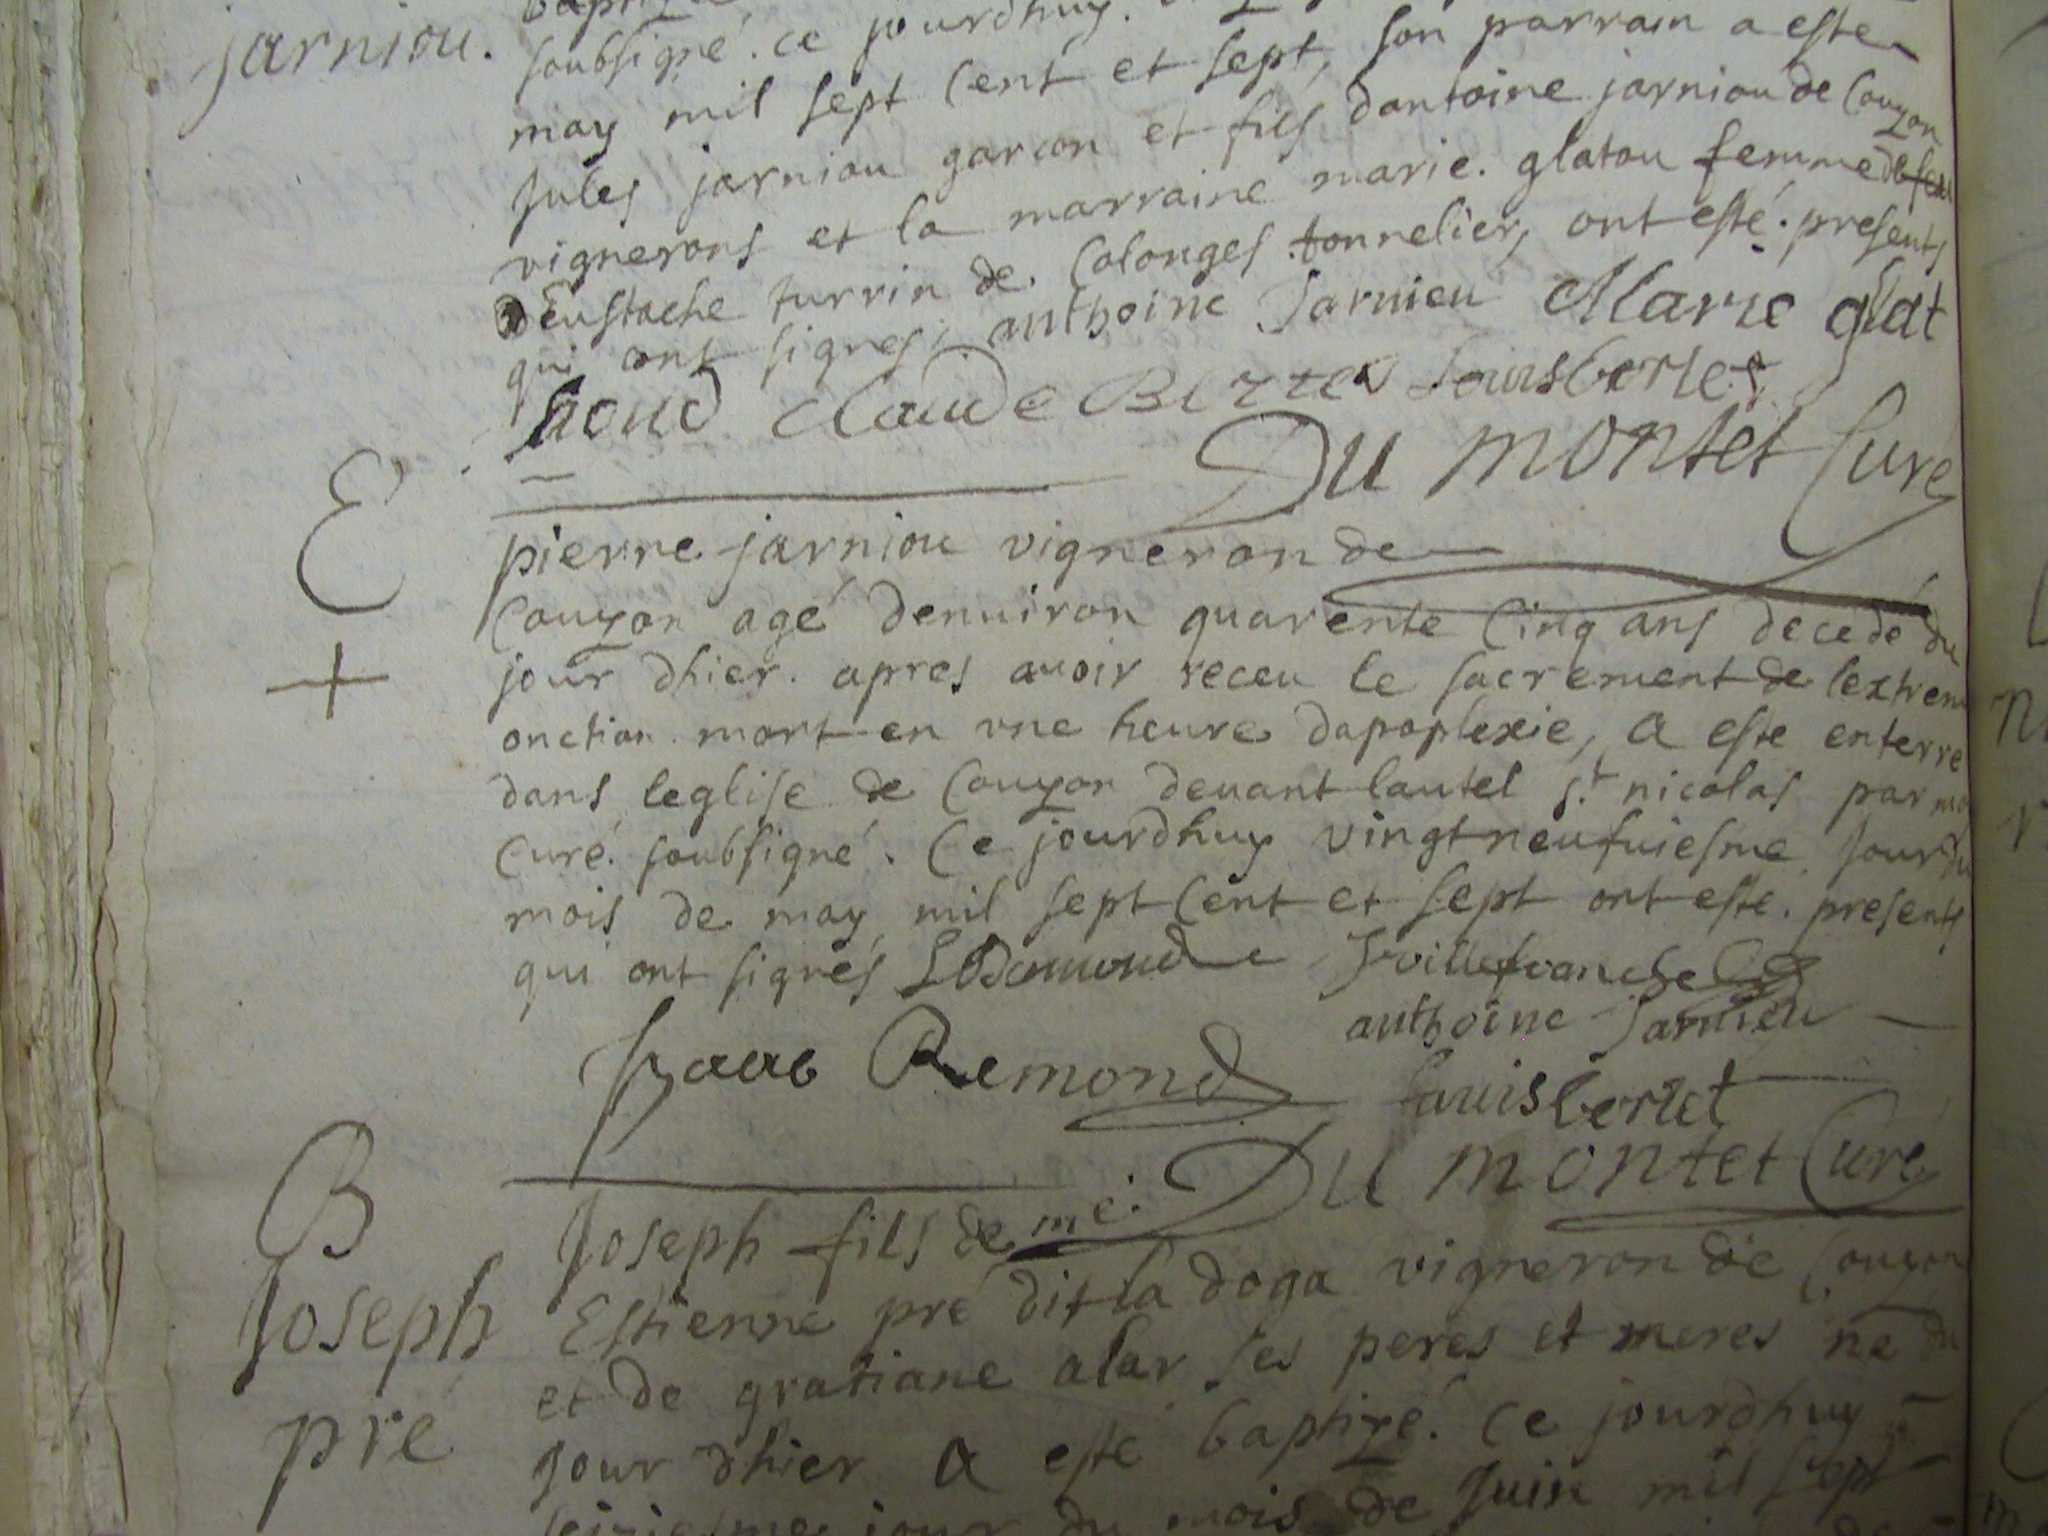 jarniou.
soubsigné. ce jourdhuy
may mil sept cent et sept, son parrain a este
Jules jarniou garcon et fils dantoine jarniou de Couzon
vignerons et la marraine marie. glatou femme
dEustache turrin de. Colonges tonnelier, ont esté. presents
qui ont signes, anthoine Jarnieu Marie glat
noud claude louis berlet
Du montet Curé
E
pierre jarniou vigneron de
Couzon agé denuiron quarente Cinq ans decedé du
jour dhier. apres auoir receu le sacrement de lextreme
onction mort en vne heure dapoplexie, a este enterre
dans leglise de Couzon deuant lautel st nicolas par moy
Curé. soubsigné. Ce jourdhuy vingtneufuiesme Jour du
mois de may mil sept Cent et sept ont esté. presents
qui ont signés villefranche
anthoine Jarnieu
Isaac Remond
louis berlet
Du montet Curé
B
Joseph
pré
Joseph fils de me.
Estienne pré dit la doga vigneron de Couzon
et de gratiane alar ses peres et meres né du
Jour dhier a esté baptizé. Ce jourdhuy
seiziesme jour du mois de Juin mil sept